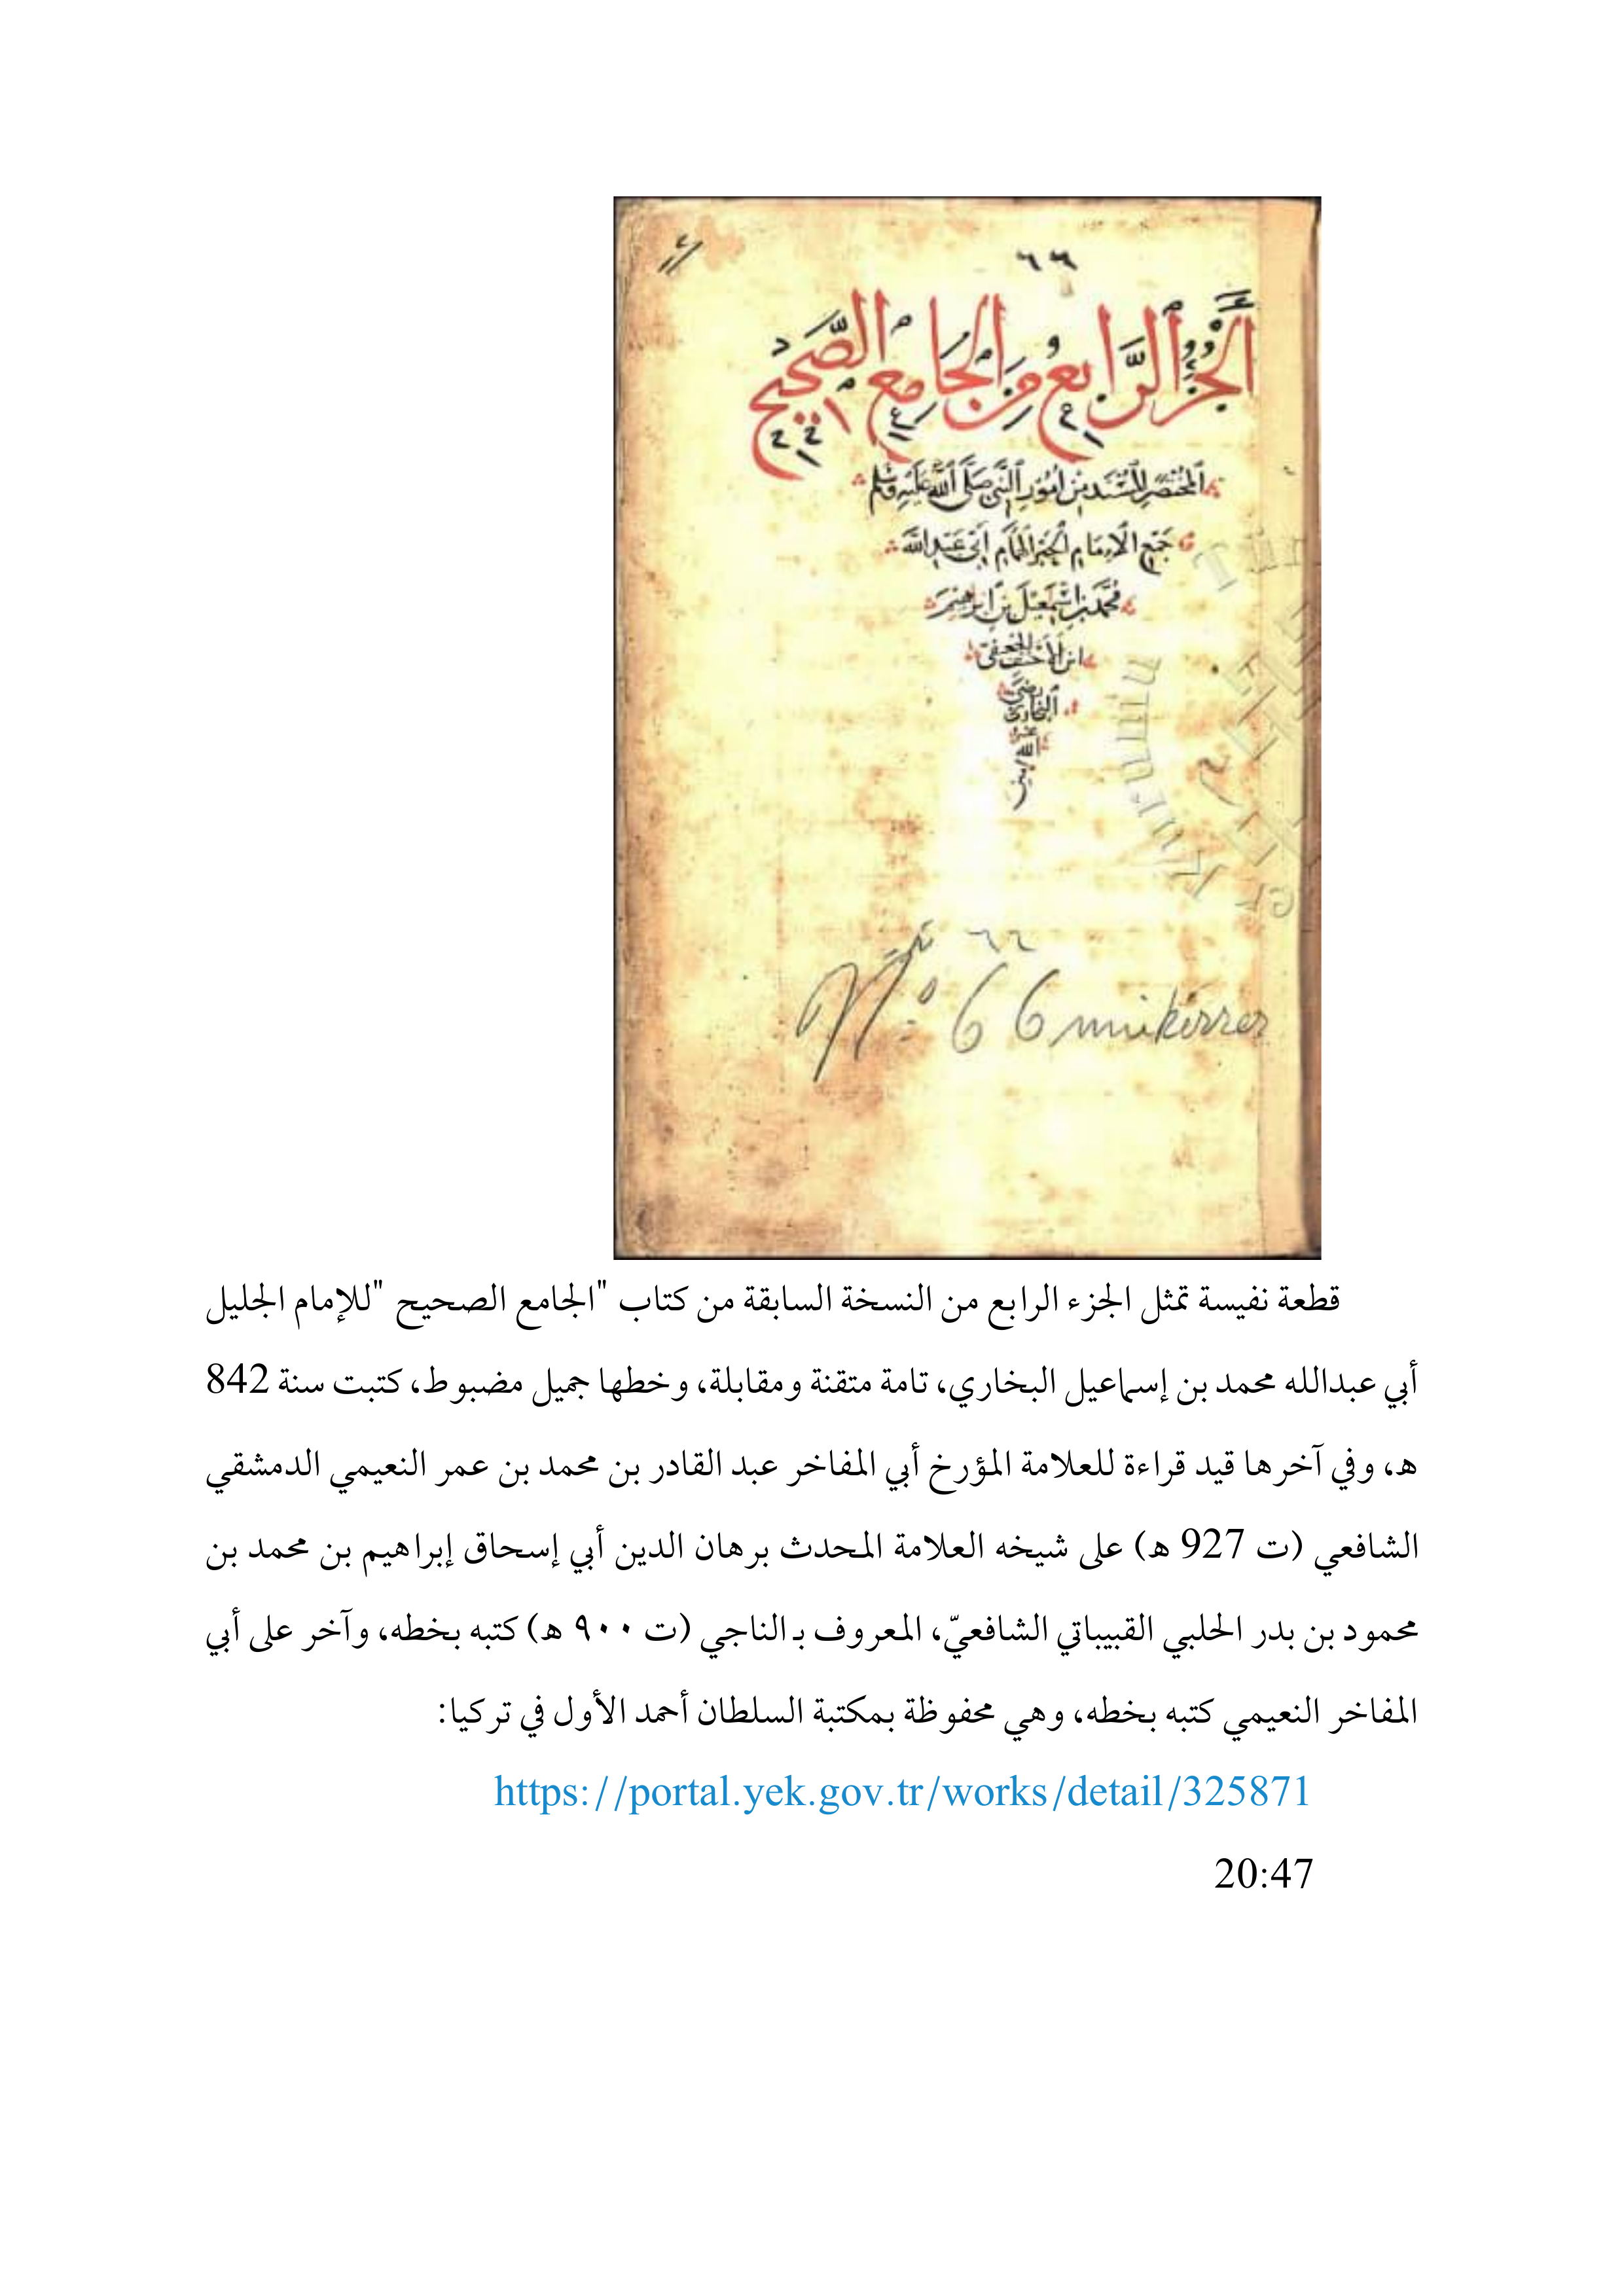 ٦٦
الجُزءُ الرَّابعُ مِنَ الجَامِعِ الصَّحِيحِ
المختصر المسند من أمور النبي صلى الله عليه وسلم
جمع الإمام الحبر الهمام أبي عبد الله
محمد بن إسمعيل بن إبرهيم
ابن الأحنف الجعفي
البخاري رضي
الله عنه
٦٦
No 66 mükerrer
قطعة نفيسة تمثل الجزء الرابع من النسخة السابقة من كتاب "الجامع الصحيح "للإمام الجليل
أبي عبدالله محمد بن إسماعيل البخاري، تامة متقنة ومقابلة، وخطها جميل مضبوط، كتبت سنة 842
ه، وفي آخرها قيد قراءة للعلامة المؤرخ أبي المفاخر عبد القادر بن محمد بن عمر النعيمي الدمشقي
الشافعي (ت 927 ه) على شيخه العلامة المحدث برهان الدين أبي إسحاق إبراهيم بن محمد بن
محمود بن بدر الحلبي القبيباتي الشافعيّ، المعروف بـالناجي (ت ٩٠٠ ه) كتبه بخطه، وآخر على أبي
المفاخر النعيمي كتبه بخطه، وهي محفوظة بمكتبة السلطان أحمد الأول في تركيا:
https://portal.yek.gov.tr/works/detail/325871
20:47